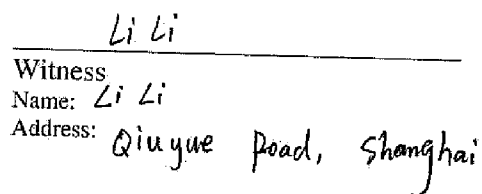 Li Li
Witness
Name: Li Li
Address: Qiuyue Road, Shanghai